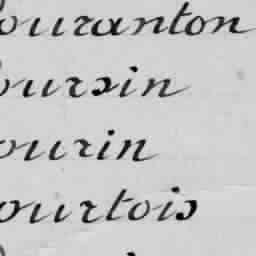 ouranton
oursin
ourin
ourtois